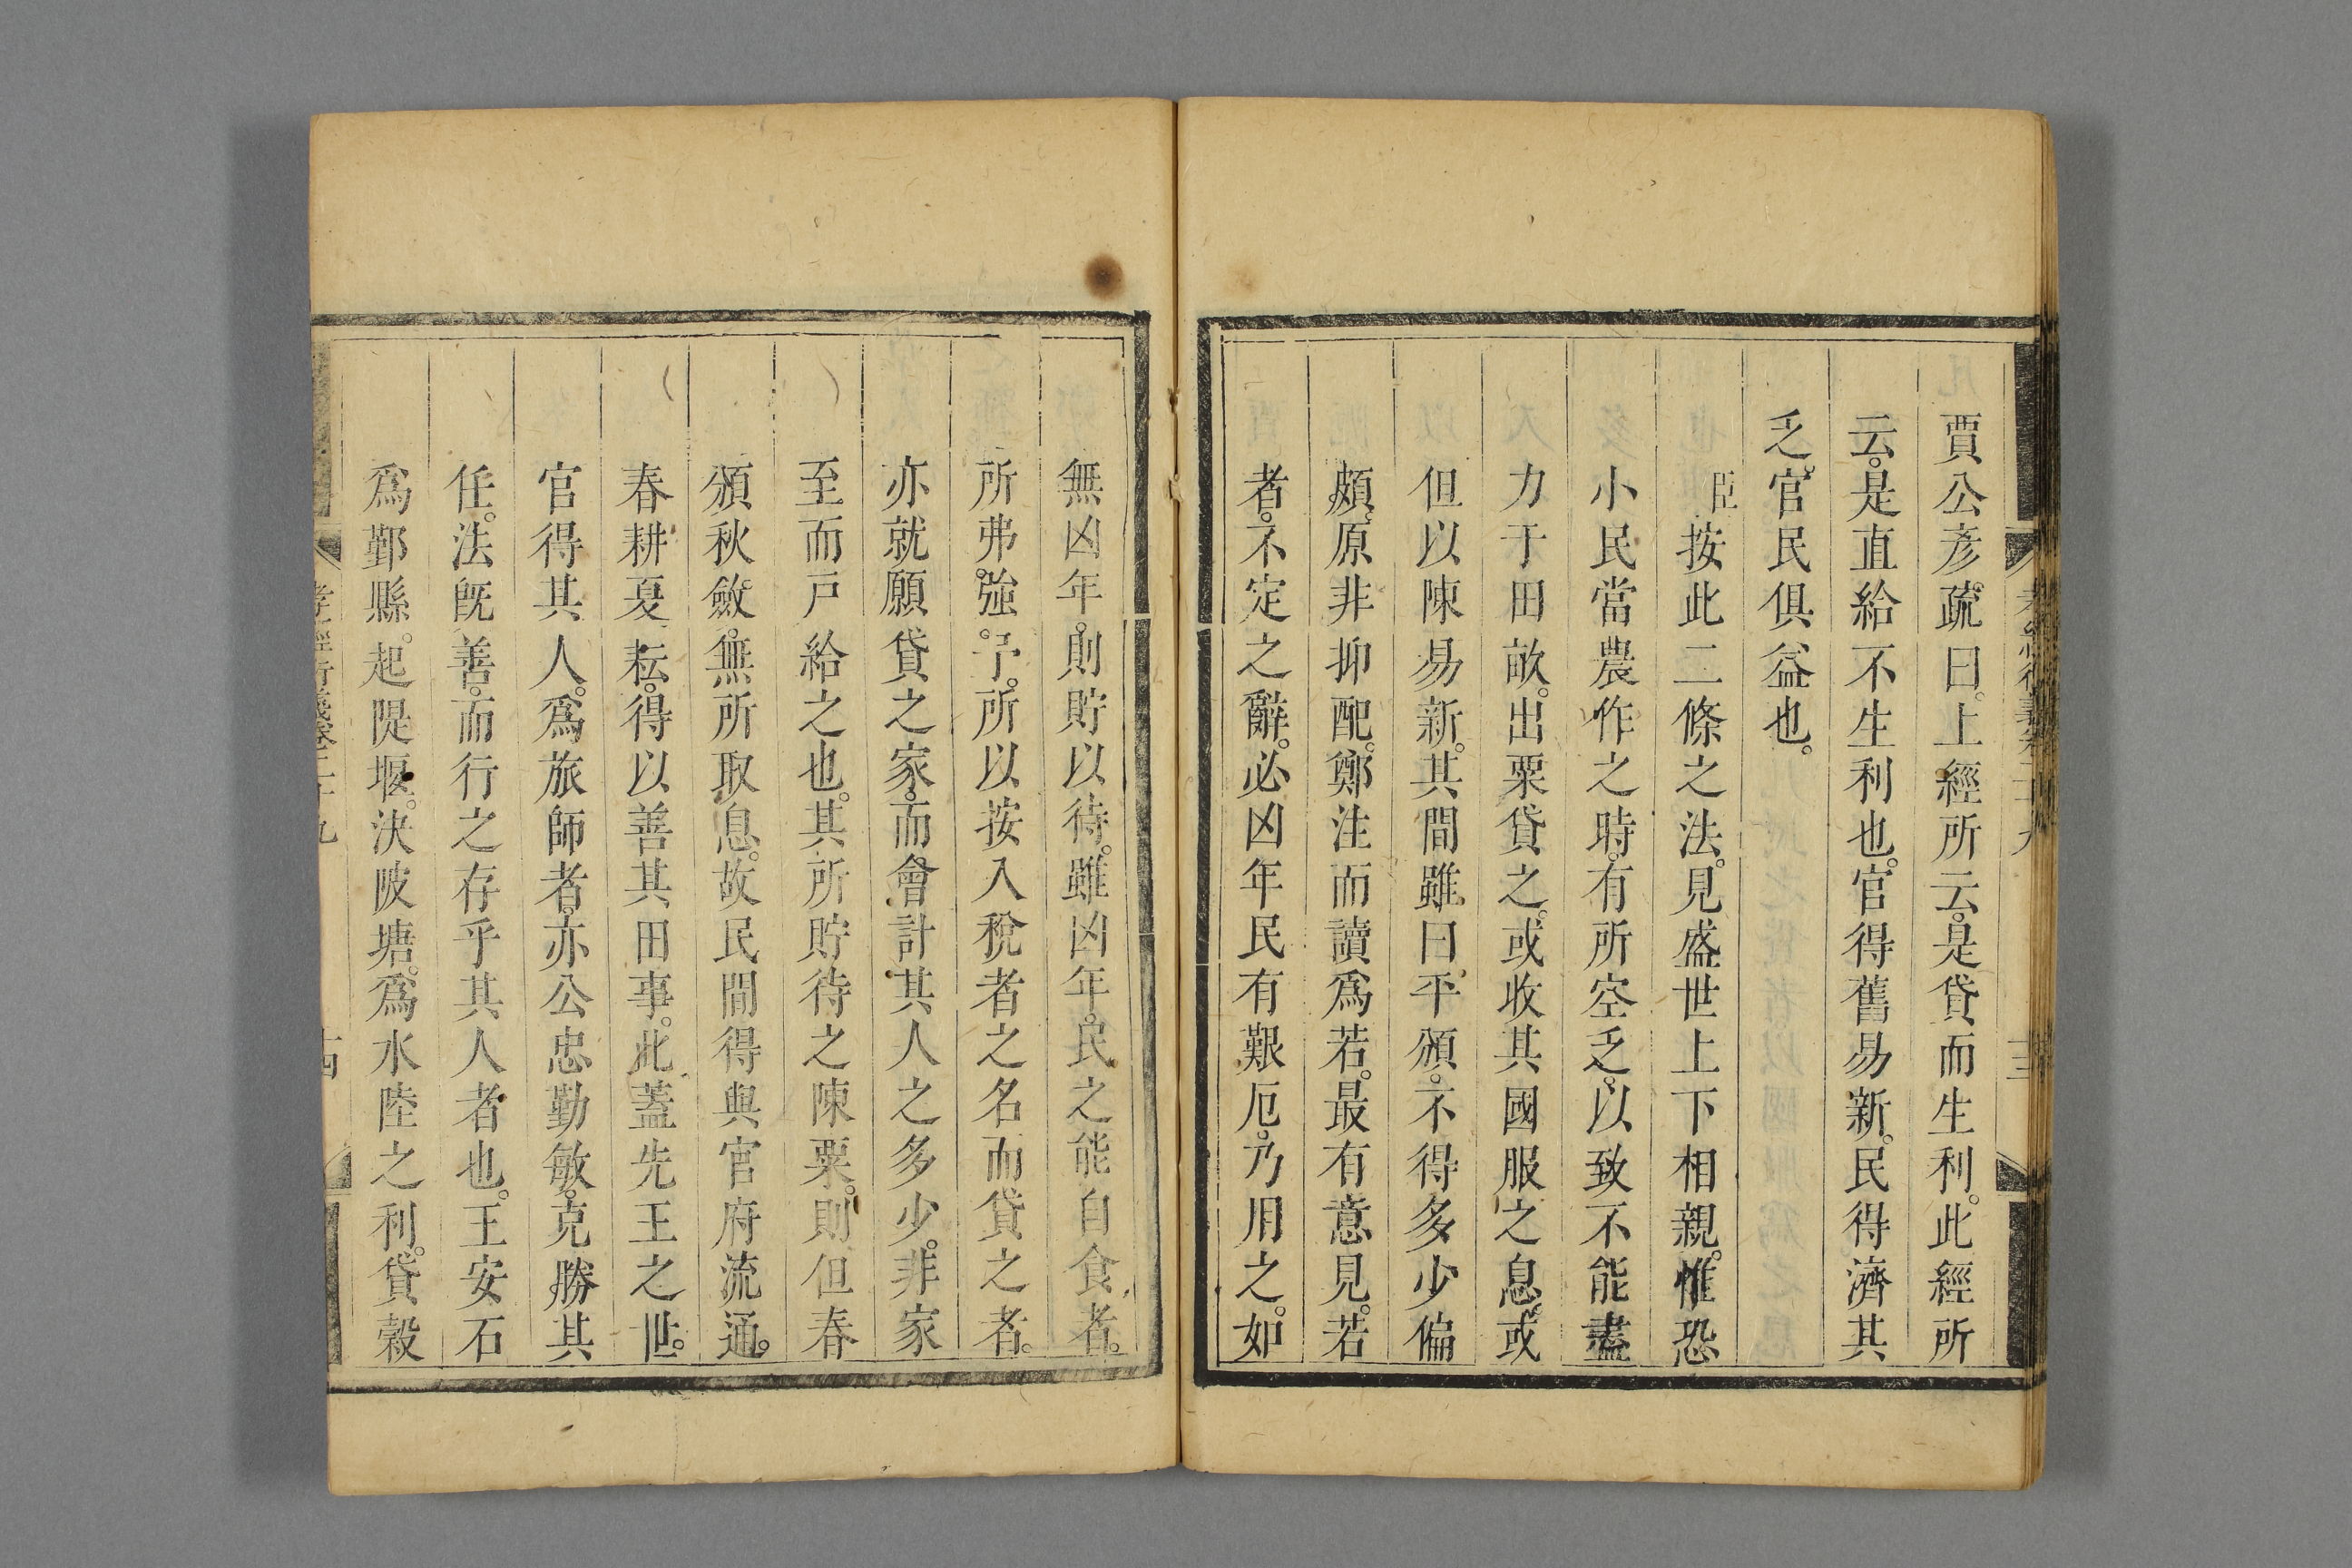 賈公彦疏曰。上經所云。是貸而生利。此經所
云。是直給不生利也。官得舊易新。民得濟其
乏。官民俱益也。
臣按此二條之法。見盛世上下相親。惟恐
小民當農作之時。有所空乏。以致不能盡
力于田畝。出粟貸之。或收其國服之息。或
但以陳易新。其間雖曰平頒。不得多少偏
頗。原非抑配。鄭注而讀爲若。最有意見。若
者。不定之辭。必凶年民有艱厄。乃用之。如
無凶年。則貯以待。雖凶年。民之能自食者。
所弗強。予。所以按入稅者之名而貸之者。
亦就願貸之家。而會計其人之多少。非家
至而戸給之也。其所貯待之陳粟。則但春
頒秋斂。無所取息。故民間得與官府流通。
春耕夏耘。得以善其田事。此蓋先王之世。
官得其人。爲旅師者。亦公忠勤敏。克勝其
任。法旣善。而行之存乎其人者也。王安石
爲鄞縣。起隄堰。決陂塘。爲水陸之利。貸穀
孝經衍義卷二十九